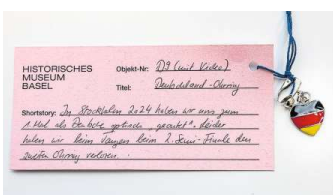 HISTORISCHES
MUSEUM
BASEL
Objekt-Nr: D9 (mit Video)
Titel: Deutschland-Ohrring
Shortstory: In Stockholm 2024 haben wir uns zum
1. Mal als Deutsche optisch „geoutet“. Leider
haben wir beim Tanzen beim 2. Semi-Finale den
zweiten Ohrring verloren.